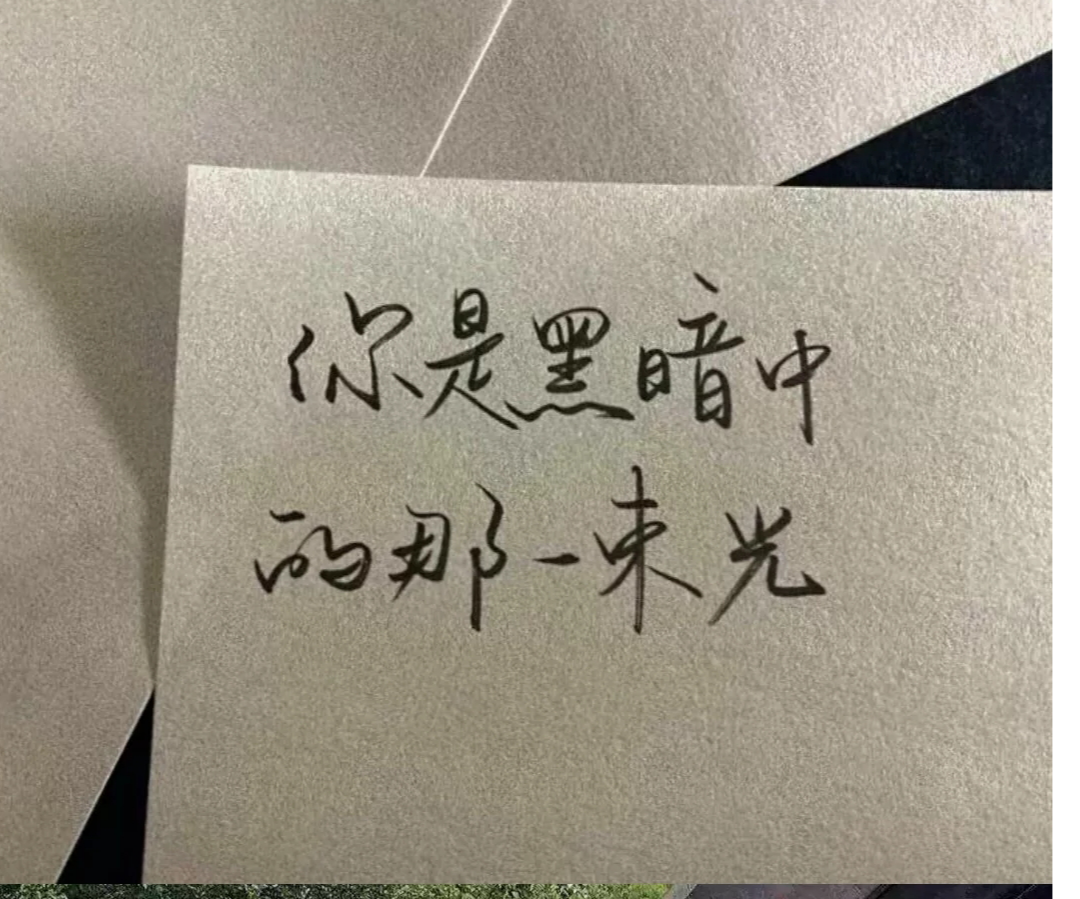 你是黑暗中
的那一束光